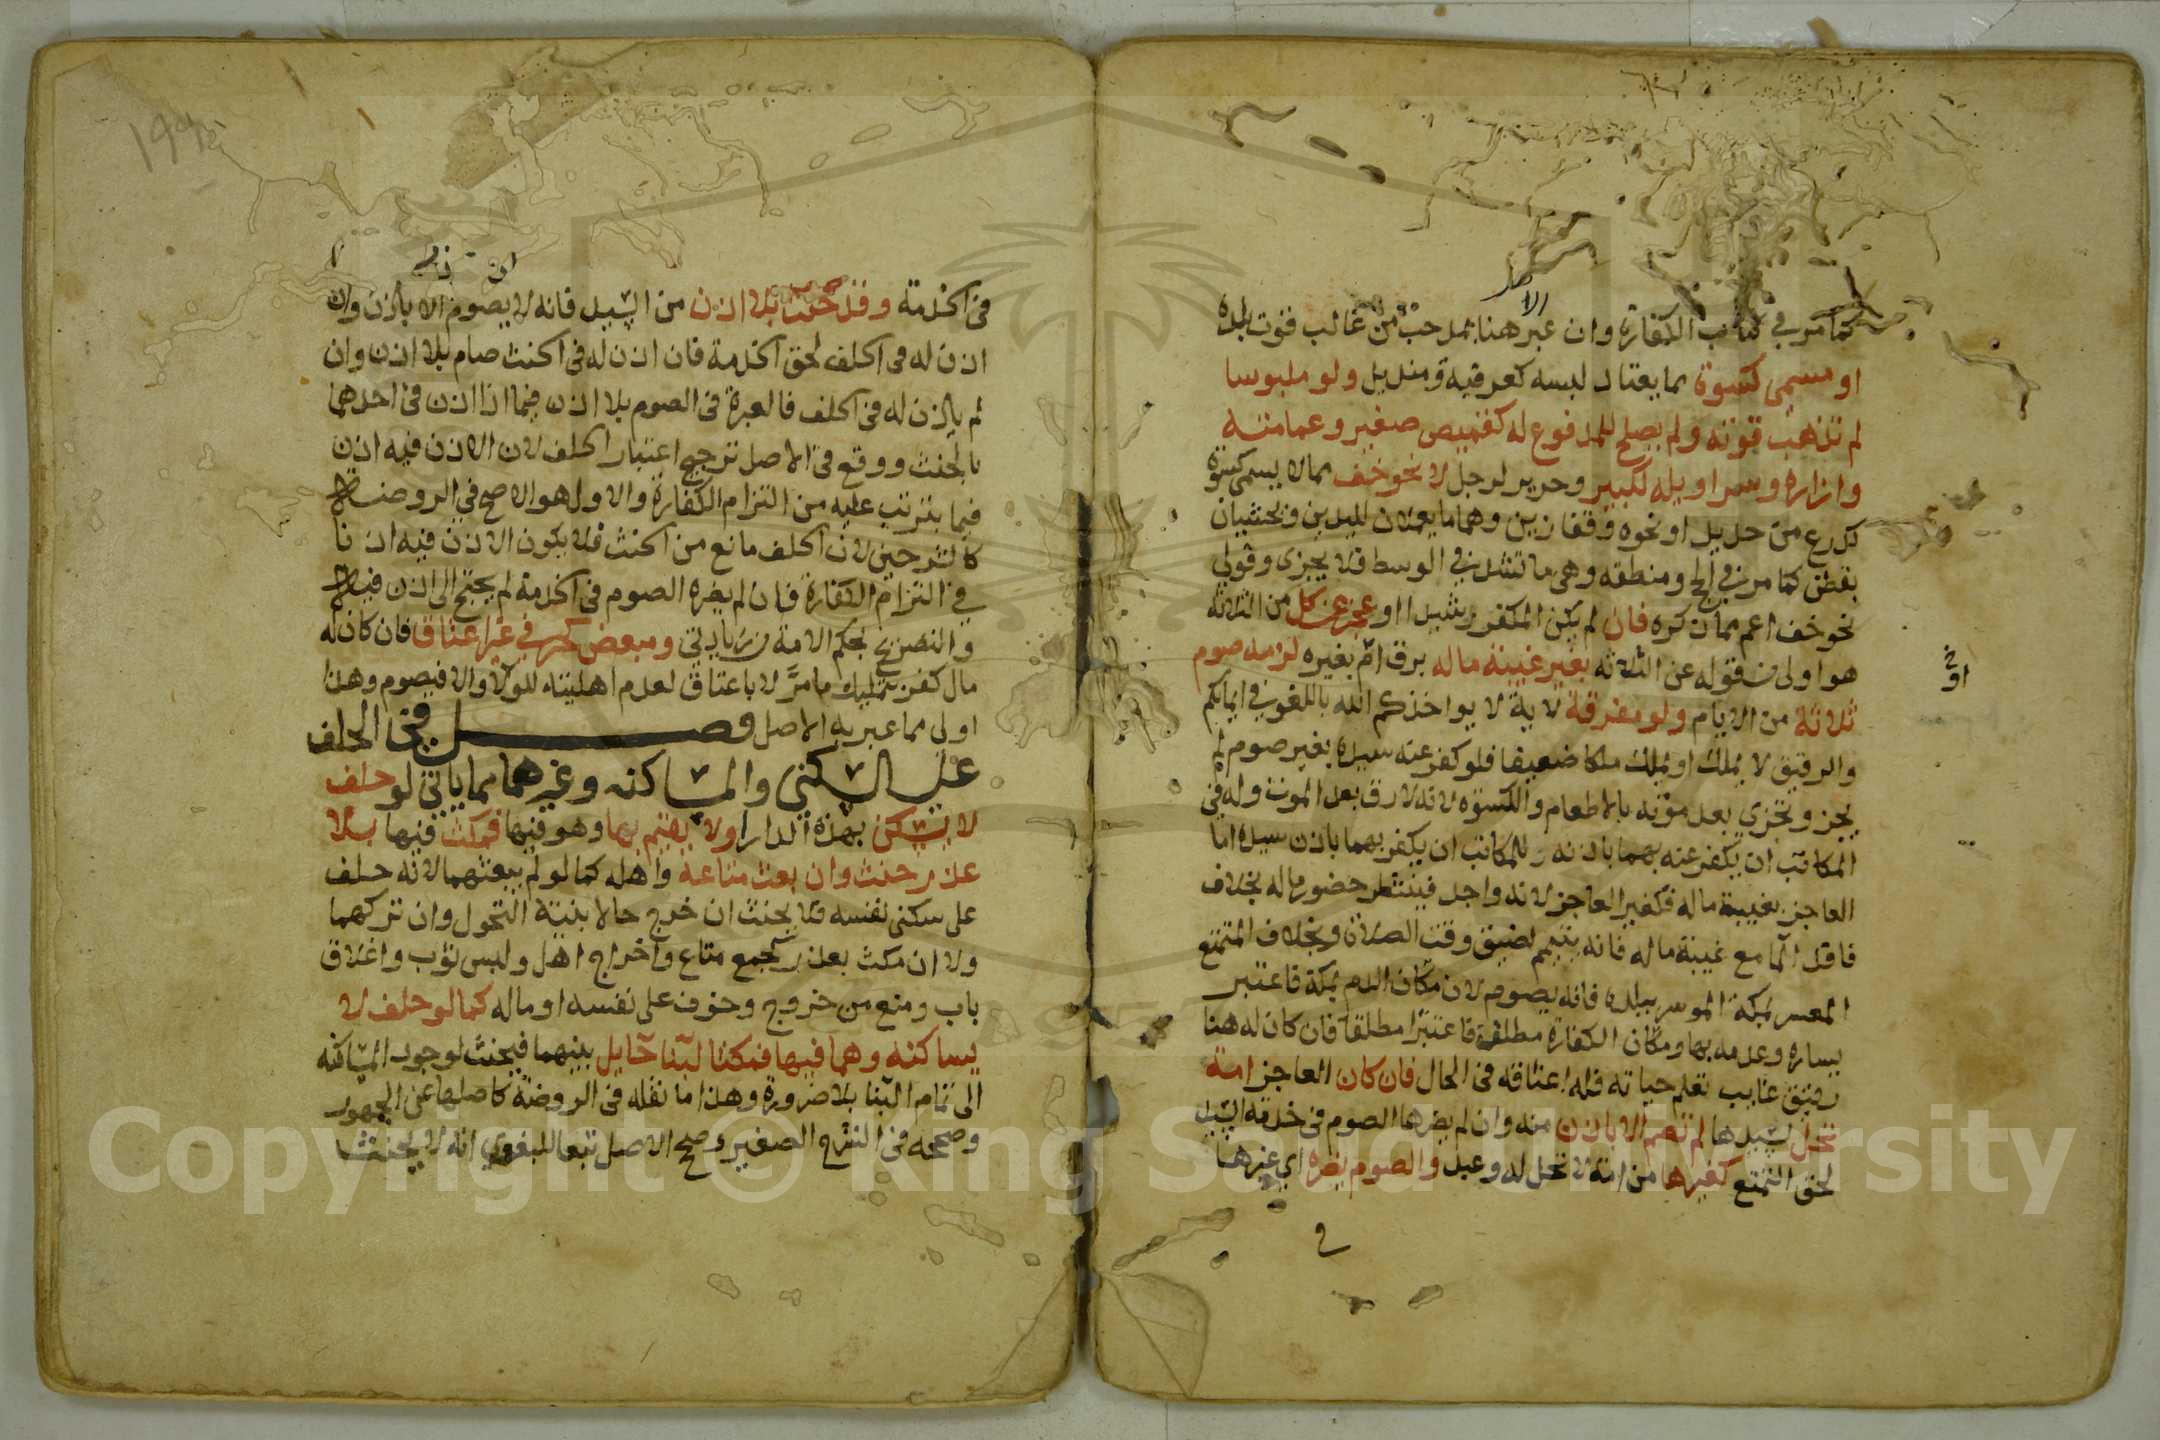 كما مر في كتاب الكفارة وان عبر هنا بمد حب من غالب قوت بلده
او مسمى كسوة مما يعتاد لبسه كعرقية ومنديل ولو ملبوسا
لم تذهب قوته ولم يصلح للمدفوع له كقميص صغير وعمامته
وازاره وسراويله لكبير وحرير لرجل لا نحو خف مما لا يسمى كسوة
كدرع من حديد او نحوه وقفازين وهما ما يعملان لليدين ويحشيان
بقطن كما مر في الحج ومنطقة وهي ما تشد في الوسط فلا يجزى وقولي
نحو خف اعم مما ذكره فان لم يكن المكفر رشيدا او عجز عن كل من الثلاثة
هو اولى من قوله عن الثلاثة بغير غيبة ماله برق ام بغيره لزمه صوم
او
ثلاثة من الايام ولو مفرقة لاية لا يواخذكم الله باللغو في ايمانكم
والرقيق لا يملك او يملك ملكا ضعيفا فلو كفر عنه سيده بغير صوم لم
يجز ويجزي بعد موته بالاطعام والكسوة لانه لا رق بعد الموت وله في
المكاتب ان يكفر عنه بهما باذنه وللمكاتب ان يكفر بهما باذن سيده اما
العاجز بغيبة ماله فكغير العاجز لانه واجد فينتظر حضور ماله بخلاف
فاقد الما مع غيبة ماله فانه يتيمم لضيق وقت الصلاة وبخلاف المتمتع
المعسر بمكة الموسر ببلده فانه يصوم لان مكان الدم بمكة فاعتبر
يساره وعدمه بها ومكان الكفارة مطلق فاعتبرا مطلقا فان كان له هنا
رقيق غايب تعلم حياته فله اعتاقه في الحال فان كان العاجز امة
تحل لسيدها لم تصم الا باذن منه وان لم يضرها الصوم في خدمة السيد
لحق التمتع كغيرها من امة لا تحل له وعبد والصوم يضره اي غيرها
في
في الخدمة وقد حنث بلا اذن من السيد فانه لا يصوم الا باذن وان
اذن له في الحلف لحق الخدمة فان اذن له في الحنث صام بلا اذن وان
لم ياذن له في الحلف فالعبرة في الصوم بلا اذن فيما اذا اذن في احدهما
بالحنث ووقع في الاصل ترجيح اعتبار الحلف لان الاذن فيه اذن
فيما يترتب عليه من التزام الكفارة والاول هو الاصح في الروضة
كالشرحين لان الحلف مانع من الحنث فلا يكون الاذن فيه اذنا
في التزام الكفارة فان لم يضره الصوم في الخدمة لم يحتج الى اذن فيه
والتصريح بحكم الامة من زيادتي ومبعض كحر في غير اعتاق فان كان له
مال كفر بتمليك ما مر لا باعتاق لعدم اهليته للولا والا فيصوم وهذا
اولى مما عبر به الاصل فصل في الحلف
على السكنى والمساكنه وغيرهما مما ياتي لو حلف
لا يسكن بهذه الدار او لا يقيم بها وهو فيها فمكث فيها بلا
عذر حنث وان بعث متاعه واهله كما لو لم يبعثهما لانه حلف
على سكنى نفسه فلا يحنث ان خرج حالا بنية التحول وان تركهما
ولا ان مكث بعذر كجمع متاع واخراج اهل ولبس ثوب واغلاق
باب ومنع من خروج وخوف على نفسه او ماله كما لو حلف لا
يساكنه وهما فيها فمكثا لبنا حايل بينهما فيحنث لوجود المساكنه
الى تمام البنا بلا ضرورة وهذا ما نقله في الروضة كاصلها عن الجمهور
وصححه في الشرح الصغير وصحح الاصل تبعا للبغوي انه لا يحنث
Copyright © King Saud University